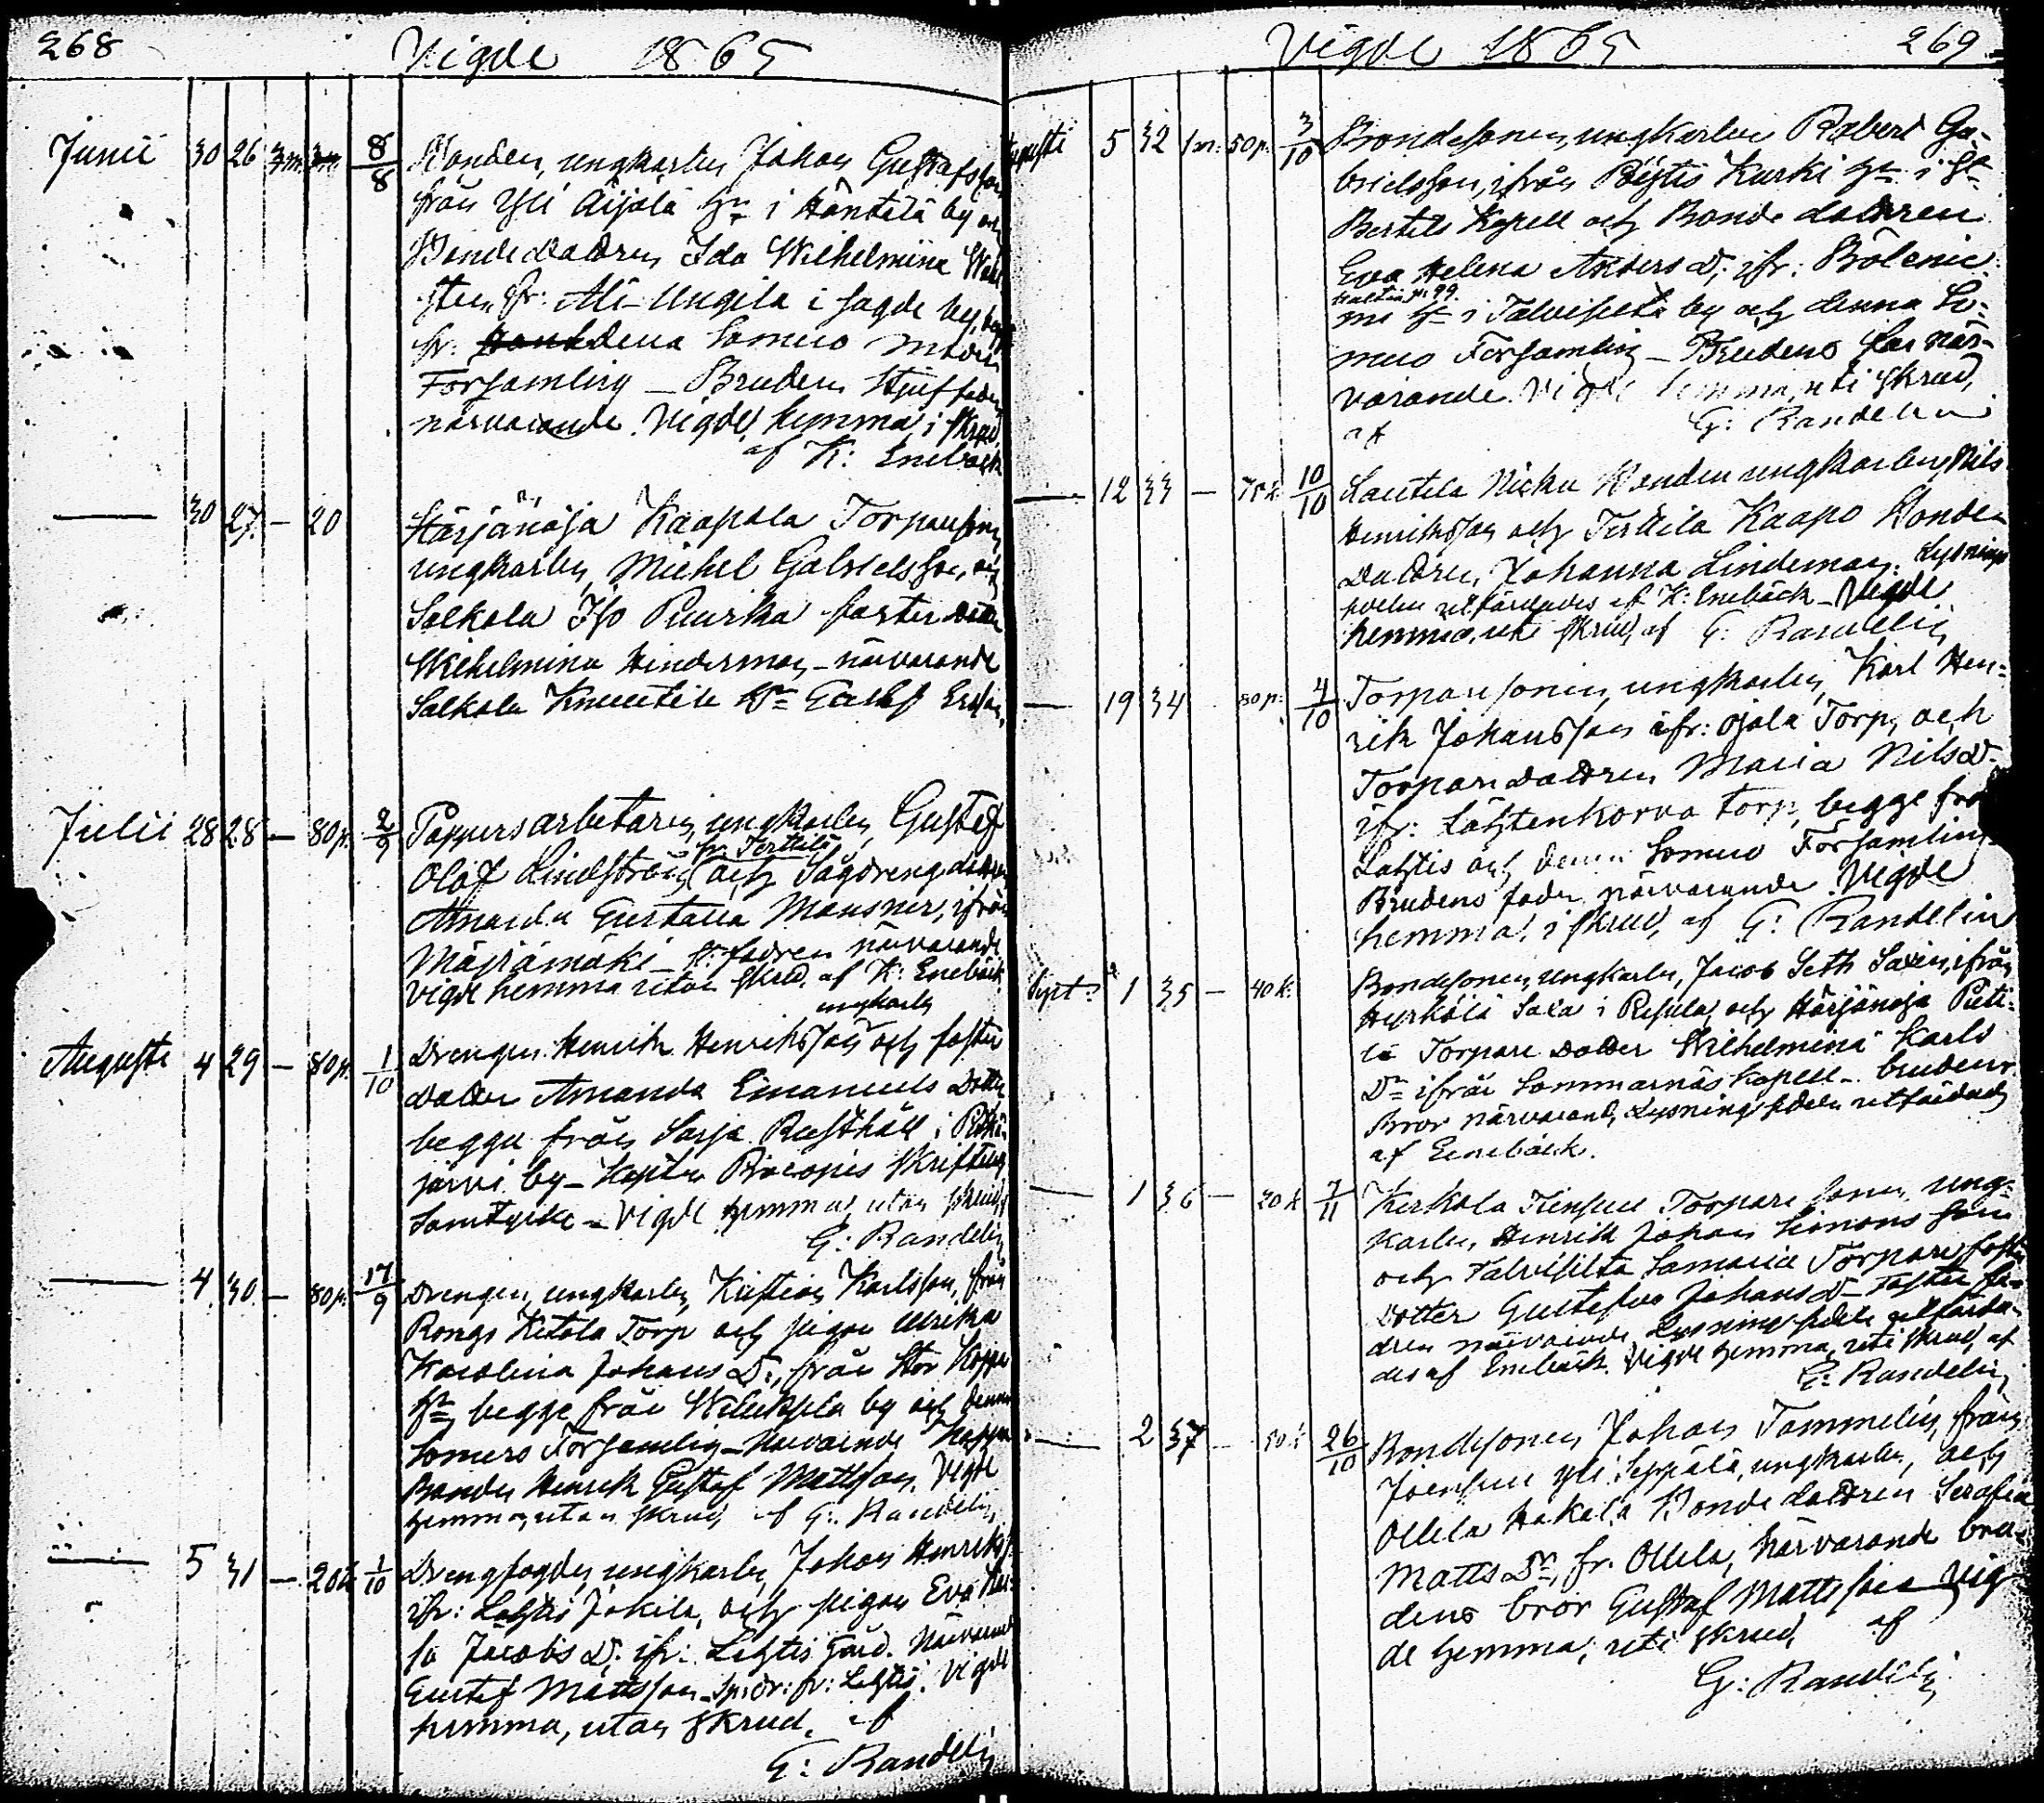 268
Vigde 1865
Junii 30 26 3m. 3m. 8/8 Bonden, ungkarlen Johan Gustafsson
från Yli Äijälä hn i Häntälä by och
Bondedottren Ida Wilhelmina
sten, fr: Ali-Ungila i sagde by,
fr: denna Somero moder
Församling _ Brudens styffader
närvarande. Vigde, hemma, i skrud,
af K: Enebäck
30 27. – 20 Härjänoja Kaapola Torparesonen
ungkarlen, Michel Gabrielsson, och
Salkola Iso Puurka foster dotter
Wilhelmina Hinderman – närvarande
Salkola Knuutila
Julii 28 28 – 80p. 2/9 Pappersarbetaren, ungkarlen, Gustaf
fr. Terttilä
Olof Lindström, och Sågdrengdottren
Amanda Gustava Mausner, ifrån
Mäyrämäki – fadren närvarande
Vigde hemma utan skrud, af K: Enebäck
ungkarlen
Augusti 4 29 – 80p. 1/10 Drengen Henrik Henriksson och foster
dotter Amanda Emanuels Dotter
begge från Sarja Rusthåll i Pitkä-
järvi by – skriftliga
Samtycke – Vigde hemma, utan skrud, af
G: Randelin
4. 30. – 80p. 17/9 Drengen, ungkarlen, Kristian Karlsson, från
Rongo Ketola Torp och pigan Ulrika
Karolina Johans D:, från Stor Hoppu
hn, begge från by och denna
Somero Församling – Närvarande Hoppu
Bonden Henrik Gustaf Mattsson, Vigde
hemma, utan skrud, af G: Randelin,
5 31 – 20k 1/10 Drengfogden, ungkarlen, Johan Henriks
ifr: Lahtis Jokila, och pigan Eva
sa Jacobs D: ifr: Lahtis Gård. Närvarande
Gustaf Mattsson fr: Lahtis. Vigde
hemma, utan skrud, af
G: Randelin
Vigde 1865
269
Augusti 5 32 1m. 50p. 3/10 Bondesonen, ungkarlen Robert Ga-
brielsson, ifrån Pöytiö Kurki hn i St
Bertils Kapell och Bonde dottren
Eva Helena Anders D: ifr:
mi hn i Talvisilta by och denna So-
mero Församling – Brudens far när-
varande. Vigde hemma, uti skrud,
af G: Randelin
12 33 – 75k 10/10 Lautela Nicku Bonden ungkarlen, Nils
Henriksson och Terttilä Kaapo Bonde
Dottren, Johanna Lindeman. Lysnings
sedeln utfärdades af K: Enebäck – Vigde
hemma, uti skrud, af G: Randelin
19 34 80p. 4/10 Torparesonen, ungkarlen, Karl Hen-
rik Johansson ifr: Ojala Torp, och
Torparedottren Maria Nils D.
ifr: Lahtenkorva torp, begge från
Lahtis och denna Somero Församling
Brudens fader närvarande. Vigde
hemma, i skrud, af G: Randelin
Sept: 1 35 – 40k. Bondesonen, ungkarlen, Jacob Seth Saxen, ifrån
Hyrkölä Sala i Pusula, och Härjänoja Pieti-
lä Torpare dotter Wilhelmina Karls
Dr ifrån Sommarnäs Kapell – brudens
Bror närvarande, Lysningssedeln utfärdad
af Enebäck.
1 36 – 20k 7/11 Kerkola Torpare sonen, ung-
karlen, Henrik Johan Simons son
och Talvisilta Torpare foster
Dotter Gustafva Johans D – Fosterfa-
dren närvarande, Lysningssedeln utfärda-
des af Enebäck. Vigde hemma, uti skrud, af
G: Randelin,
2 37 – 50k 26/10 Bondesonen Johan Tammelin, från
Joensuu Yli Seppälä, ungkarlen, och
Ollila Hakala Bonde dottren Serafia
Matts Dr, fr. Ollila, närvarande bru-
dens bror Gustaf Mattsson Vig-
de hemma, uti skrud, af
G: Randelin